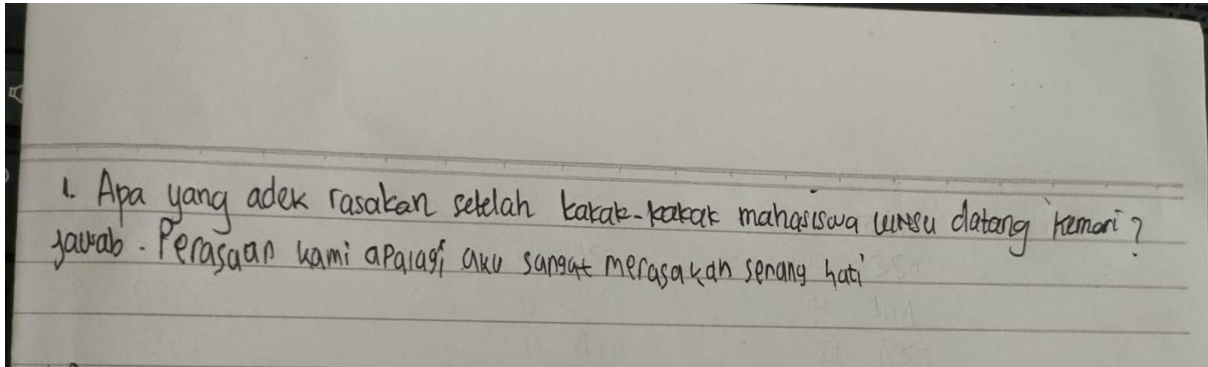 1. Apa yang adek rasakan setelah kakak-kakak mahasiswa uinsu datang kemari?
Jawab. Perasaan kami apalagi aku sangat merasakan senang hati